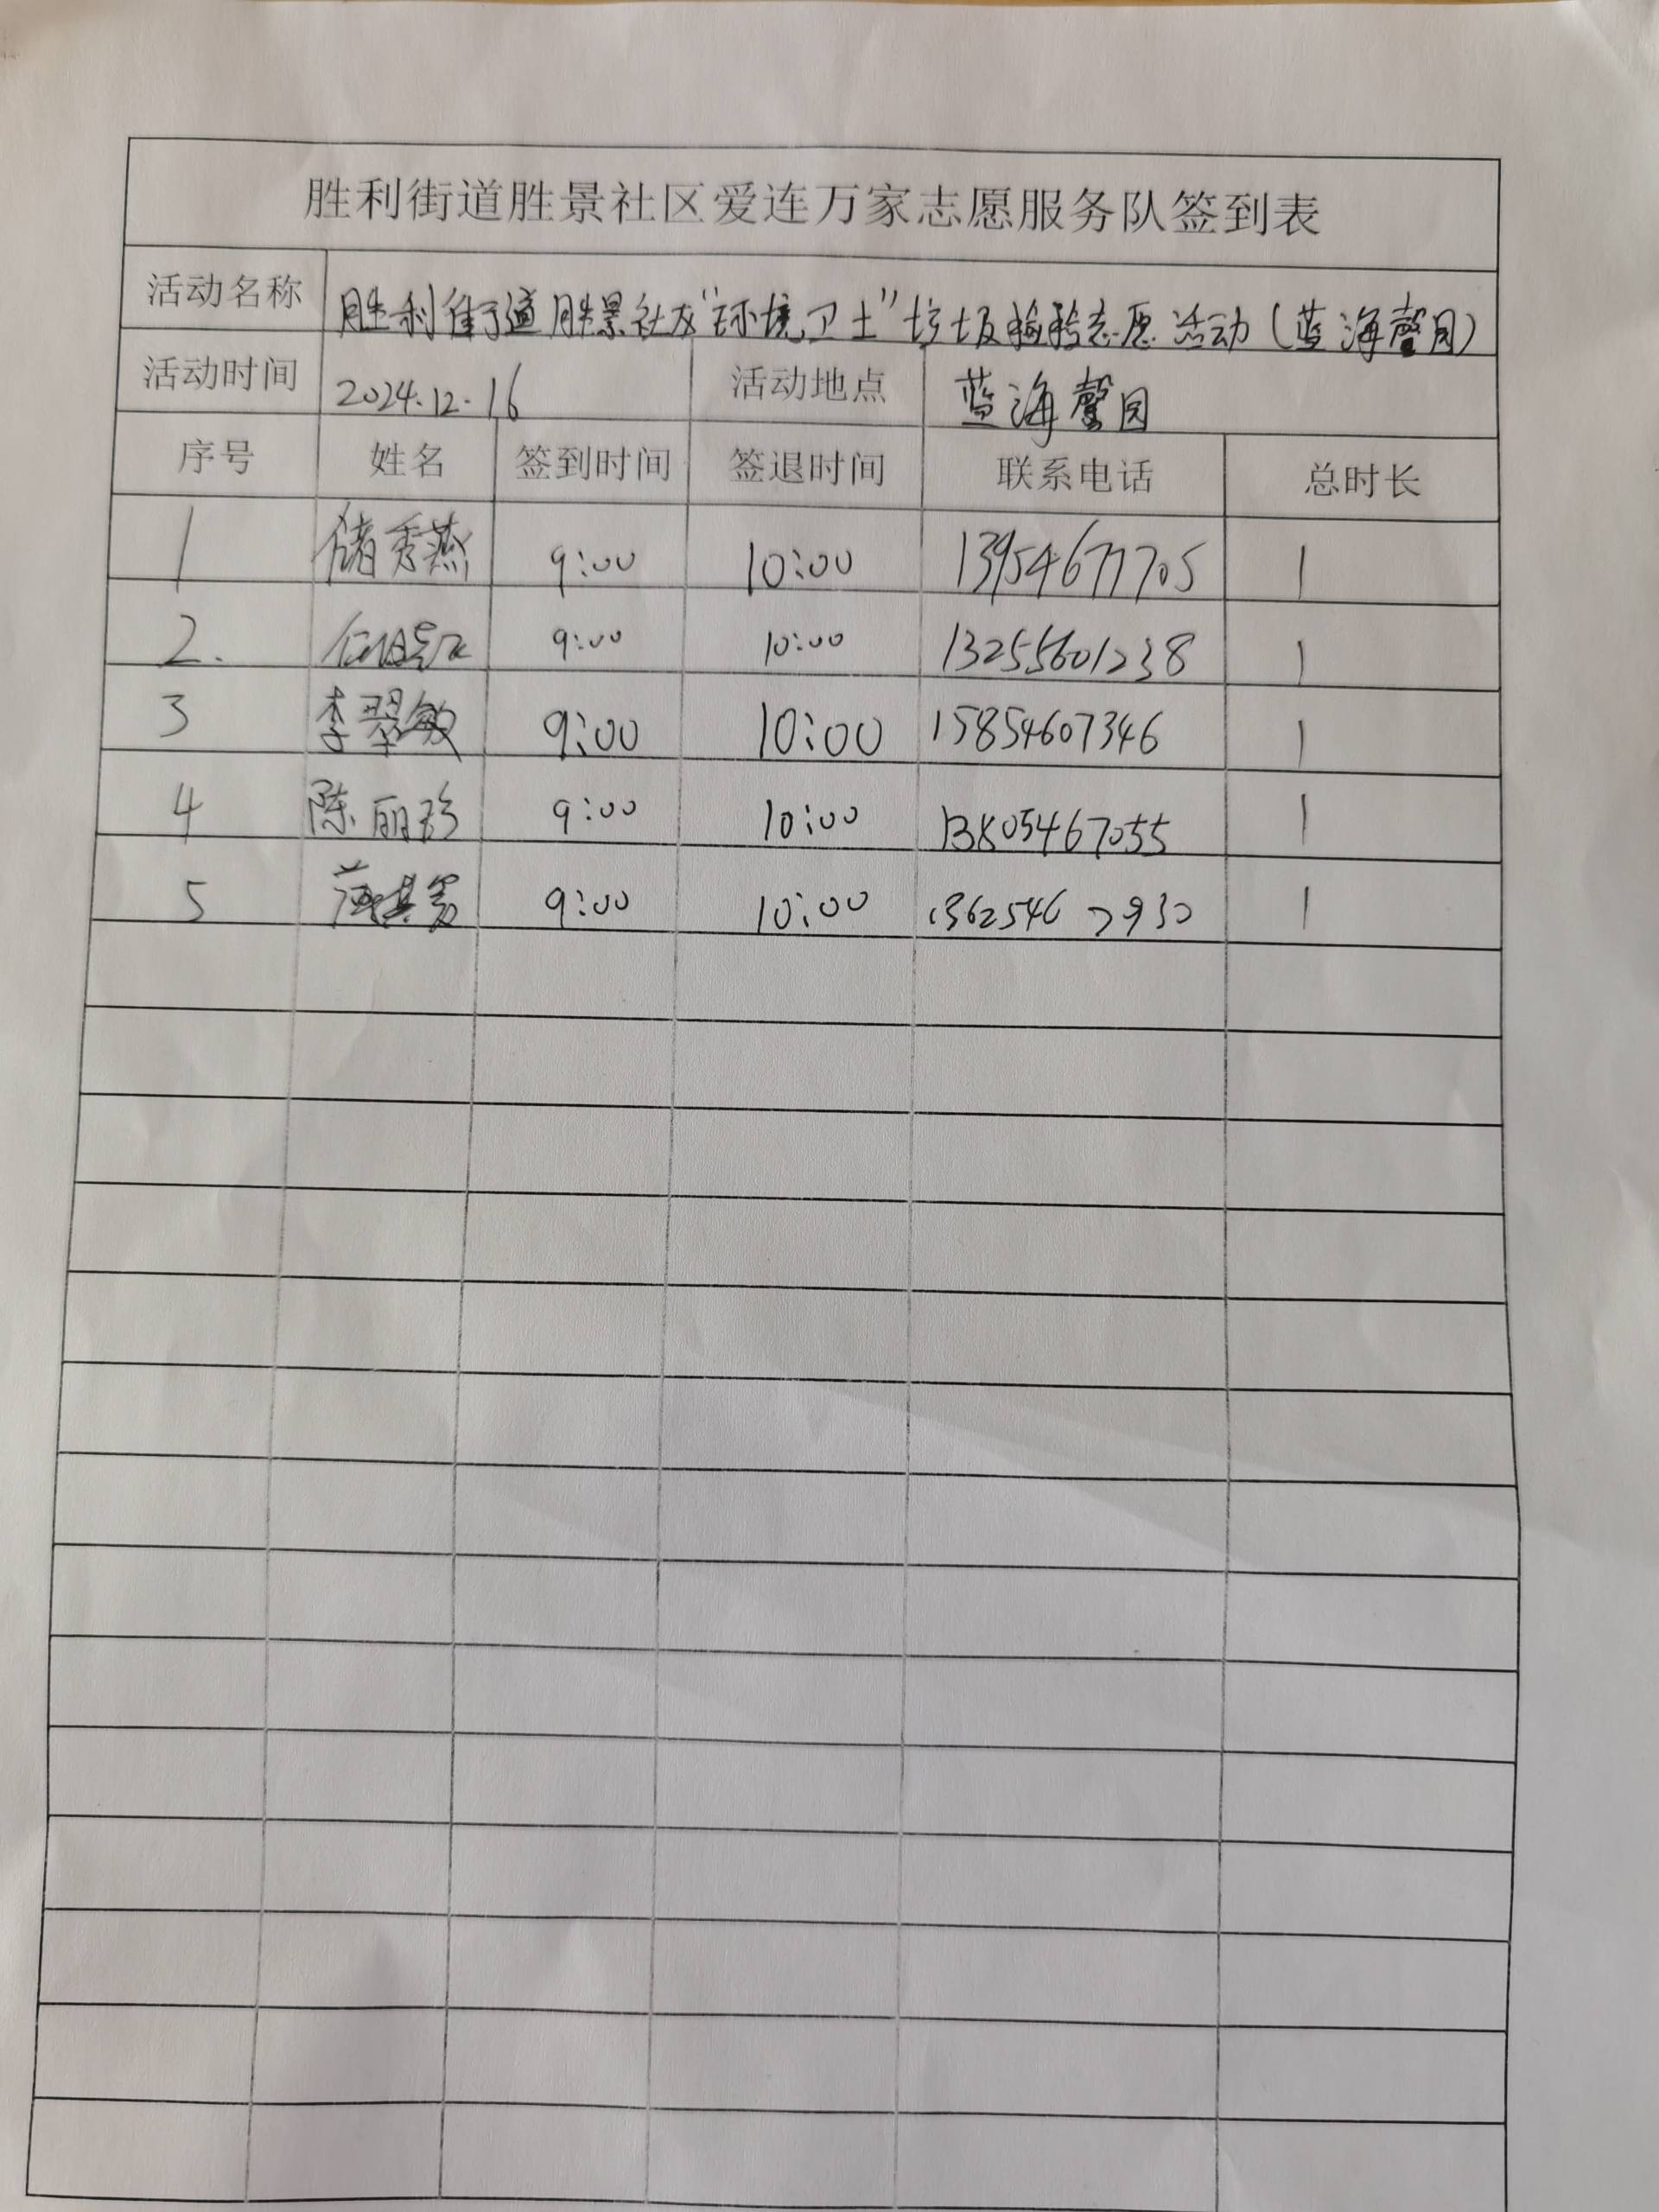 胜利街道胜景社区爱连万家志愿服务队签到表
活动名称 胜利街道胜景社区“环境卫士”垃圾捡拾志愿活动(蓝海馨园)
活动时间 2024.12.16 活动地点 蓝海馨园
序号 姓名 签到时间 签退时间 联系电话 总时长
1 储秀燕 9:00 10:00 13954677705 1
2. 9:00 10:00 13255601238 1
3 李翠敏 9:00 10:00 15854607346 1
4 陈丽珍 9:00 10:00 13805467055 1
5 9:00 10:00 13625467930 1